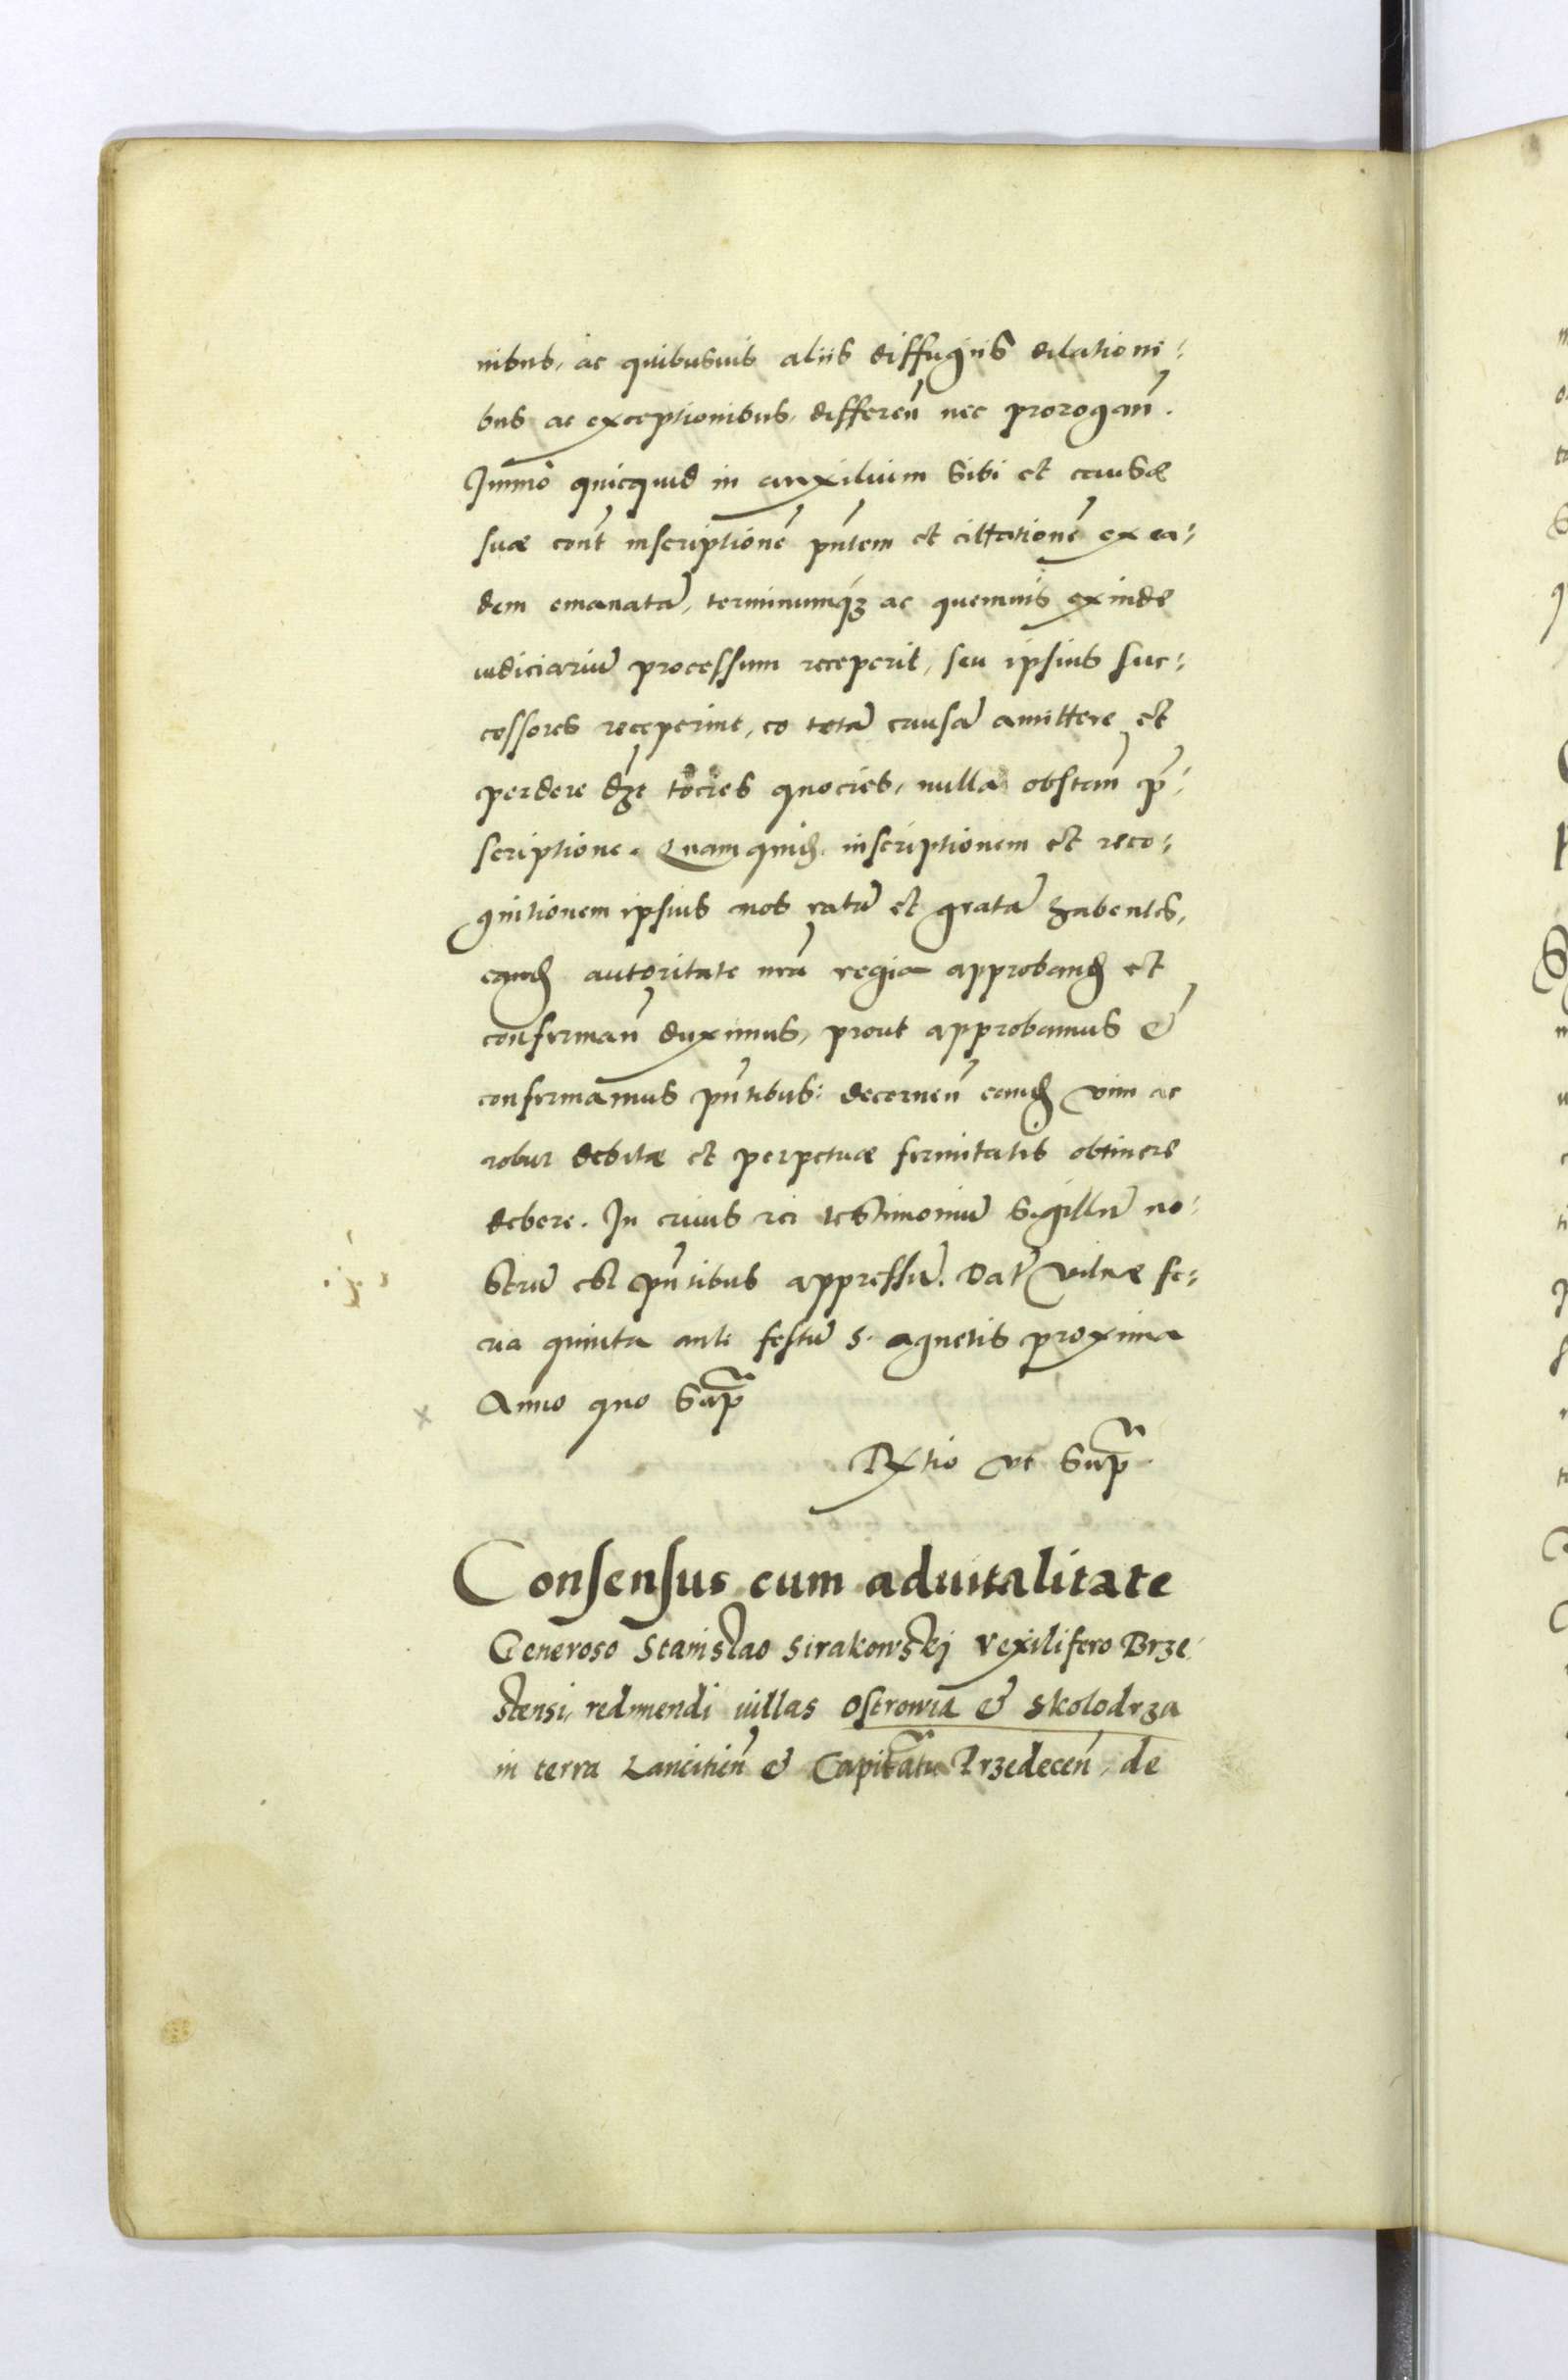 nibus, ac quibusuis aliis diffugiis dilationi-
bus ac exceptionibus, differen̄ nec prorogan̄.
Immo quicquid in auxilium sibi et causæ
suæ cont̄ inscriptionē pn̄tem et cittationē ex ea-
dem emanatā, terminumq́ꝫ ac quemuis exinde
iudiciariū processum receperit, seu ipsius suc-
cessores receperint, eo totā causā amittere et
perdere dꝫt tocies quocies, nulla obstan̄ p̄-
scriptione. Quam quid. inscriptionem et reco-
gnitionem ipsius nos ratā et gratā habentes,
eand autoritate nr̄a regia approband et
confirman̄ duximus, prout approbamus &
confirmamus pn̄tibus: decernen̄ eand vim ac
robur debitæ et perpetuæ firmitatis obtinere
debere. In cuius rei testimoniū Sigillū no-
strū est pn̄tibus appressū. Dat̄ Vilnæ fe-
ria quinta ante festū S. Agnetis proxima
Anno quo Sup̄
Rxtio vt Sup̄
Consensus cum aduitalitate
Generoso Stanislao Sirakowskj Vexilifero Brze-
stensi, redimendi uillas Ostrowia & Skolodrza
in terra Lancitien̄ & Capitatu Przedecen̄, de